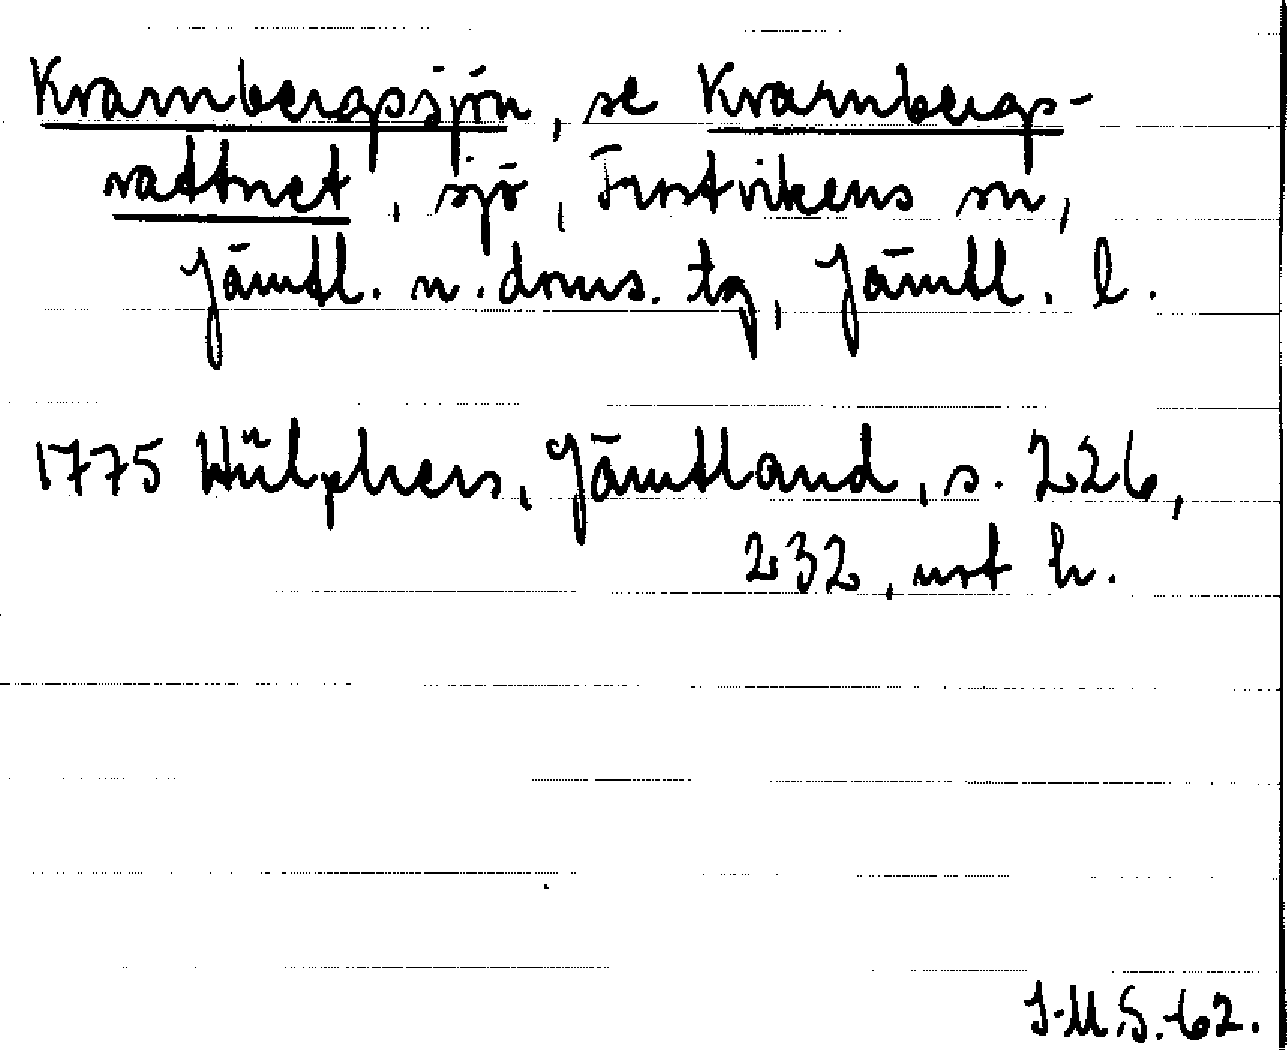 Kvarnbergssjön, se Kvarnbergs-
vattnet, sjö, Frostvikens sn,
Jämtl. n. doms. tg, Jämtl. l.
1775 Hülphers, Jämtland, s. 226,
232, urt h.
J.M.S.-62.